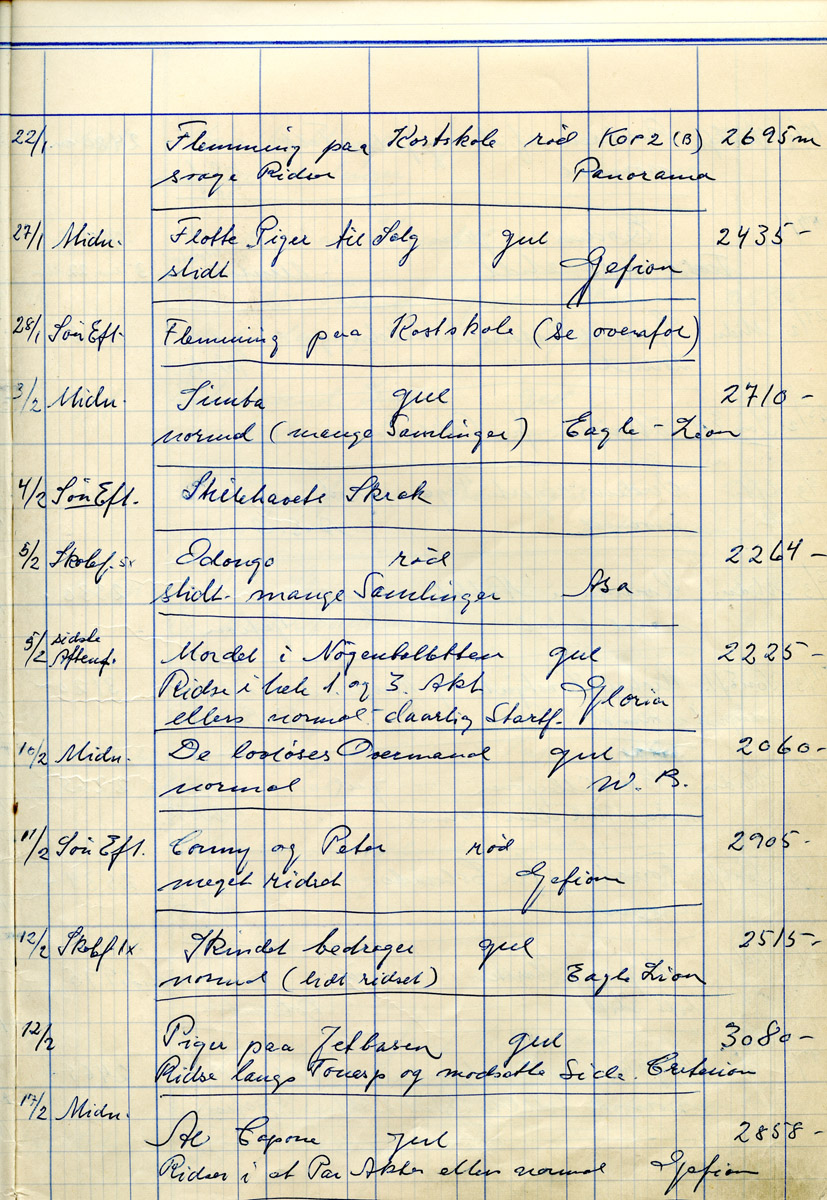 22/1 Flemming paa Kostskole rød Kop 2 (B) 2695 m
svage Ridser Panorama
27/1 Midn. Flotte Piger til Salg gul 2435 -
slidt Gefion
28/1 Søn Eft. Flemming paa Kostskole (se ovenfor)
3/2 Midn. Simba gul 2710 -
normal (mange Samlinger) Eagle-Lion
4/2 Søn Eft. Stillehavets Skræk
5/2 Skolef. 5x Odongo rød 2264 -
slidt - mange Samlinger Asa
5/2 sidste
Aftenf. Mordet i Nøgenballetten gul 2225 -
Ridse i hele 1. og 3. Akt Gloria
ellers normal - daarlig Startf.
10/2 Midn. De lovløses Overmand gul 2060 -
normal W. B.
11/2 Søn Eft. Conny og Peter rød 2905 -
meget ridset Gefion
12/2 Skolef 1x Skindet bedrager gul 2515 -
normal (lidt ridset) Eagle Lion
12/2 Piger paa Jetbasen gul 3080 -
Ridse langs Tonesp og modsatte Side. Criterion
17/2 Midn.
Al Capone gul 2858 -
Ridser i et Par Akter ellers normal Gefion